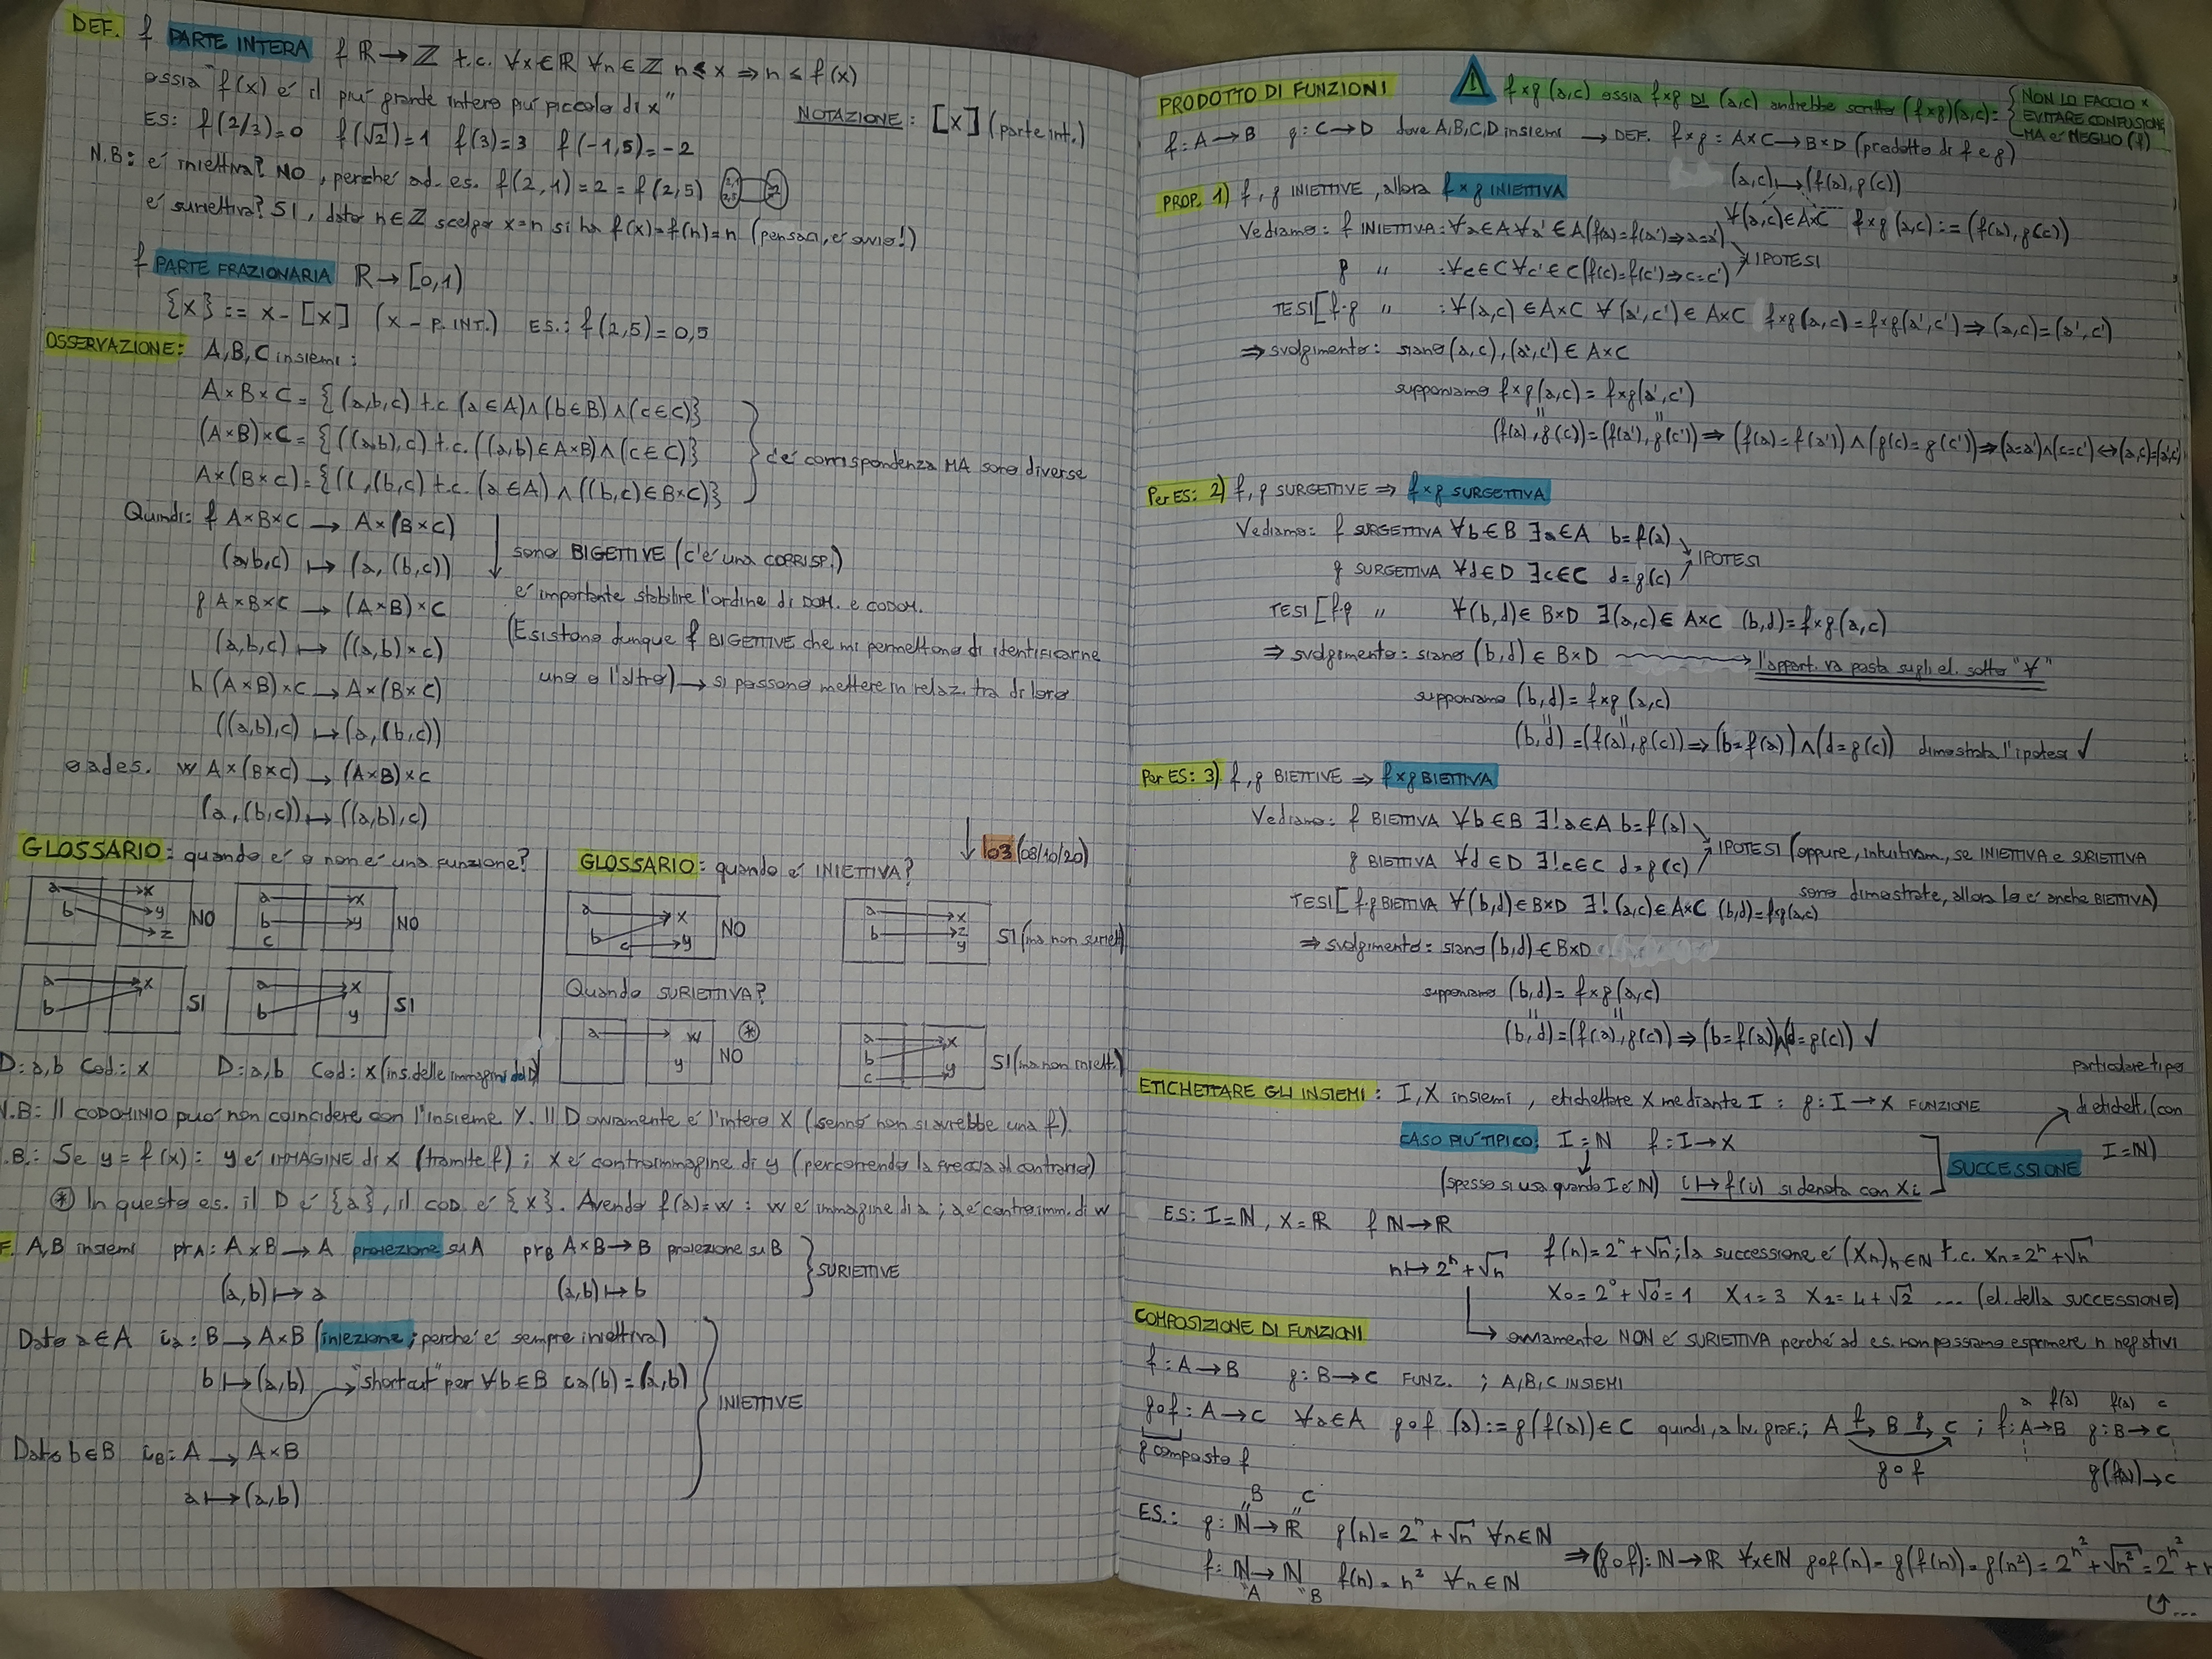 DEF. f PARTE INTERA f ℝ→ℤ t.c. ∀x∈ℝ ∀n∈ℤ n≤x ⇒ n≤f(x)
ossia "f(x) é il piú grande intero piú piccolo di x"
NOTAZIONE: [x] (parte int.)
ES: f(2/3)=0 f(√2)=1 f(3)=3 f(-1,5)=-2
N.B: é iniettiva? NO, perché ad. es. f(2,1)=2=f(2,5)
é suriettiva? SI, dato n∈ℤ scelgo x=n si ha f(x)=f(n)=n (pensaci, é ovvio!)
f PARTE FRAZIONARIA ℝ→[0,1)
{x} := x-[x] (x - P. INT.) ES.: f(2,5)=0,5
OSSERVAZIONE: A,B,C insiemi:
A×B×C = {(a,b,c) t.c. (a∈A)∧(b∈B)∧(c∈C)}
(A×B)×C = {((a,b),c) t.c. ((a,b)∈A×B)∧(c∈C)}
A×(B×C) = {( ,(b,c) t.c. (a∈A)∧((b,c)∈B×C)}
c'é corrispondenza MA sono diverse
Quindi: f A×B×C → A×(B×C)
(a,b,c) ↦ (a,(b,c))
g A×B×C → (A×B)×C
(a,b,c) ↦ ((a,b)×c)
h (A×B)×C → A×(B×C)
((a,b),c) ↦ (a,(b,c))
o ad es. w A×(B×C) → (A×B)×C
(a,(b,c)) ↦ ((a,b),c)
sono BIGETTIVE (c'é una CORRISP.)
é importante stabilire l'ordine di DOM. e CODOM.
(Esistono dunque f BIGETTIVE che mi permettono di identificarne
uno o l'altro) → si possono mettere in relaz. tra di loro
↓ l03 (08/10/20)
GLOSSARIO: quando é o non é una funzione?
a x
b y
z
NO
a x
b y
c
NO
a x
b
SI
a x
b y
SI
D: a,b Cod.: x D: a,b Cod: x (ins. delle immagini del D)
GLOSSARIO: quando é INIETTIVA?
a x
b
c y
NO
a x
b z
y
SI (ma non suriett)
Quando SURIETTIVA?
a w
y
⊛
NO
a x
b
c y
SI (ma non iniett.)
N.B: Il CODOMINIO puó non coincidere con l'insieme Y. Il D ovviamente é l'intero X (sennó non si avrebbe una f).
.B.: Se y=f(x): y é IMMAGINE di x (tramite f); x é controimmagine di y (percorrendo la freccia al contrario)
⊛ In questo es. il D é {a}, il COD. é {x}. Avendo f(a)=w: w é immagine di a; a é controimm. di w
F. A,B insiemi prA: A×B→A proiezione su A prB A×B→B proiezione su B
(a,b)↦a (a,b)↦b
SURIETTIVE
Dato a∈A ia: B→A×B (iniezione; perché é sempre iniettiva)
b↦(a,b) → "shortcut" per ∀b∈B ia(b)=(a,b)
INIETTIVE
Dato b∈B iB: A→A×B
a↦(a,b)
PRODOTTO DI FUNZIONI ! f×g (a,c) ossia f×g DI (a,c) andrebbe scritto (f×g)(a,c)= { NON LO FACCIO ×
EVITARE CONFUSIONE
MA é MEGLIO (f)
f: A→B g: C→D dove A,B,C,D insiemi → DEF. f×g: A×C→B×D (prodotto di f e g)
(a,c)↦(f(a),g(c))
∀(a,c)∈A×C f×g (a,c):=(f(a),g(c))
PROP. 1) f,g INIETTIVE, allora f×g INIETTIVA
Vediamo: f INIETTIVA: ∀a∈A ∀a'∈A (f(a)=f(a')⇒a=a')
g " : ∀c∈C ∀c'∈C (f(c)=f(c')⇒c=c')
IPOTESI
TESI [f·g " : ∀(a,c)∈A×C ∀(a',c')∈A×C f×g(a,c)=f×g(a',c')⇒(a,c)=(a',c')
⇒ svolgimento: siano (a,c),(a',c')∈A×C
supponiamo f×g(a,c)=f×g(a',c')
(f(a),g(c))=(f(a'),g(c'))⇒(f(a)=f(a'))∧(g(c)=g(c'))⇒(a=a')∧(c=c')⇔(a,c)=(a',c')
Per ES: 2) f,g SURGETTIVE ⇒ f×g SURGETTIVA
Vediamo: f SURGETTIVA ∀b∈B ∃a∈A b=f(a)
g SURGETTIVA ∀d∈D ∃c∈C d=g(c)
IPOTESI
TESI [f·g " ∀(b,d)∈B×D ∃(a,c)∈A×C (b,d)=f×g(a,c)
⇒ svolgimento: siano (b,d)∈B×D → l'appart. va posta sugli el. sotto "∀"
supponiamo (b,d)=f×g (a,c)
(b,d)=(f(a),g(c))⇒(b=f(a))∧(d=g(c)) dimostrata l'ipotesi ✓
Per ES: 3) f,g BIETTIVE ⇒ f×g BIETTIVA
Vediamo: f BIETTIVA ∀b∈B ∃!a∈A b=f(a)
g BIETTIVA ∀d∈D ∃!c∈C d=g(c)
IPOTESI (oppure, intuitivam., se INIETTIVA e SURIETTIVA
sono dimostrate, allora lo é anche BIETTIVA)
TESI [f·g BIETTIVA ∀(b,d)∈B×D ∃!(a,c)∈A×C (b,d)=f×g(a,c)
⇒ svolgimento: siano (b,d)∈B×D
supponiamo (b,d)=f×g(a,c)
(b,d)=(f(a),g(c))⇒(b=f(a))∧(d=g(c)) ✓
ETICHETTARE GLI INSIEMI: I,X insiemi, etichettare X mediante I: g: I→X FUNZIONE
CASO PIÚ TIPICO: I=ℕ f: I→X
(spesso si usa quando I é ℕ) i↦f(i) si denota con xi
SUCCESSIONE
particolare tipo
di etichett. (con
I=ℕ)
ES: I=ℕ, X=ℝ f ℕ→ℝ
n↦2ⁿ+√n
f(n)=2ⁿ+√n; la successione é (Xn)n∈ℕ t.c. Xn=2ⁿ+√n
X0=2⁰+√0=1 X1=3 X2=4+√2 ... (el. della SUCCESSIONE)
→ ovviamente NON é SURIETTIVA perché ad es. non possiamo esprimere n negativi
COMPOSIZIONE DI FUNZIONI
f: A→B g: B→C FUNZ. ; A,B,C INSIEMI
g∘f: A→C ∀a∈A g∘f (a):=g(f(a))∈C quindi, a liv. graf.; A f→ B g→ C ; f: A→B g: B→C
g composto f
g∘f
a f(a) f(a) c
g(f(a))→c
ES.: g: ℕ→ℝ g(n)=2ⁿ+√n ∀n∈ℕ
B C
f: ℕ→ℕ f(n)=n² ∀n∈ℕ
A B
⇒(g∘f): ℕ→ℝ ∀x∈ℕ g∘f(n)=g(f(n))=g(n²)=2^n²+√n²=2^n²+n
...